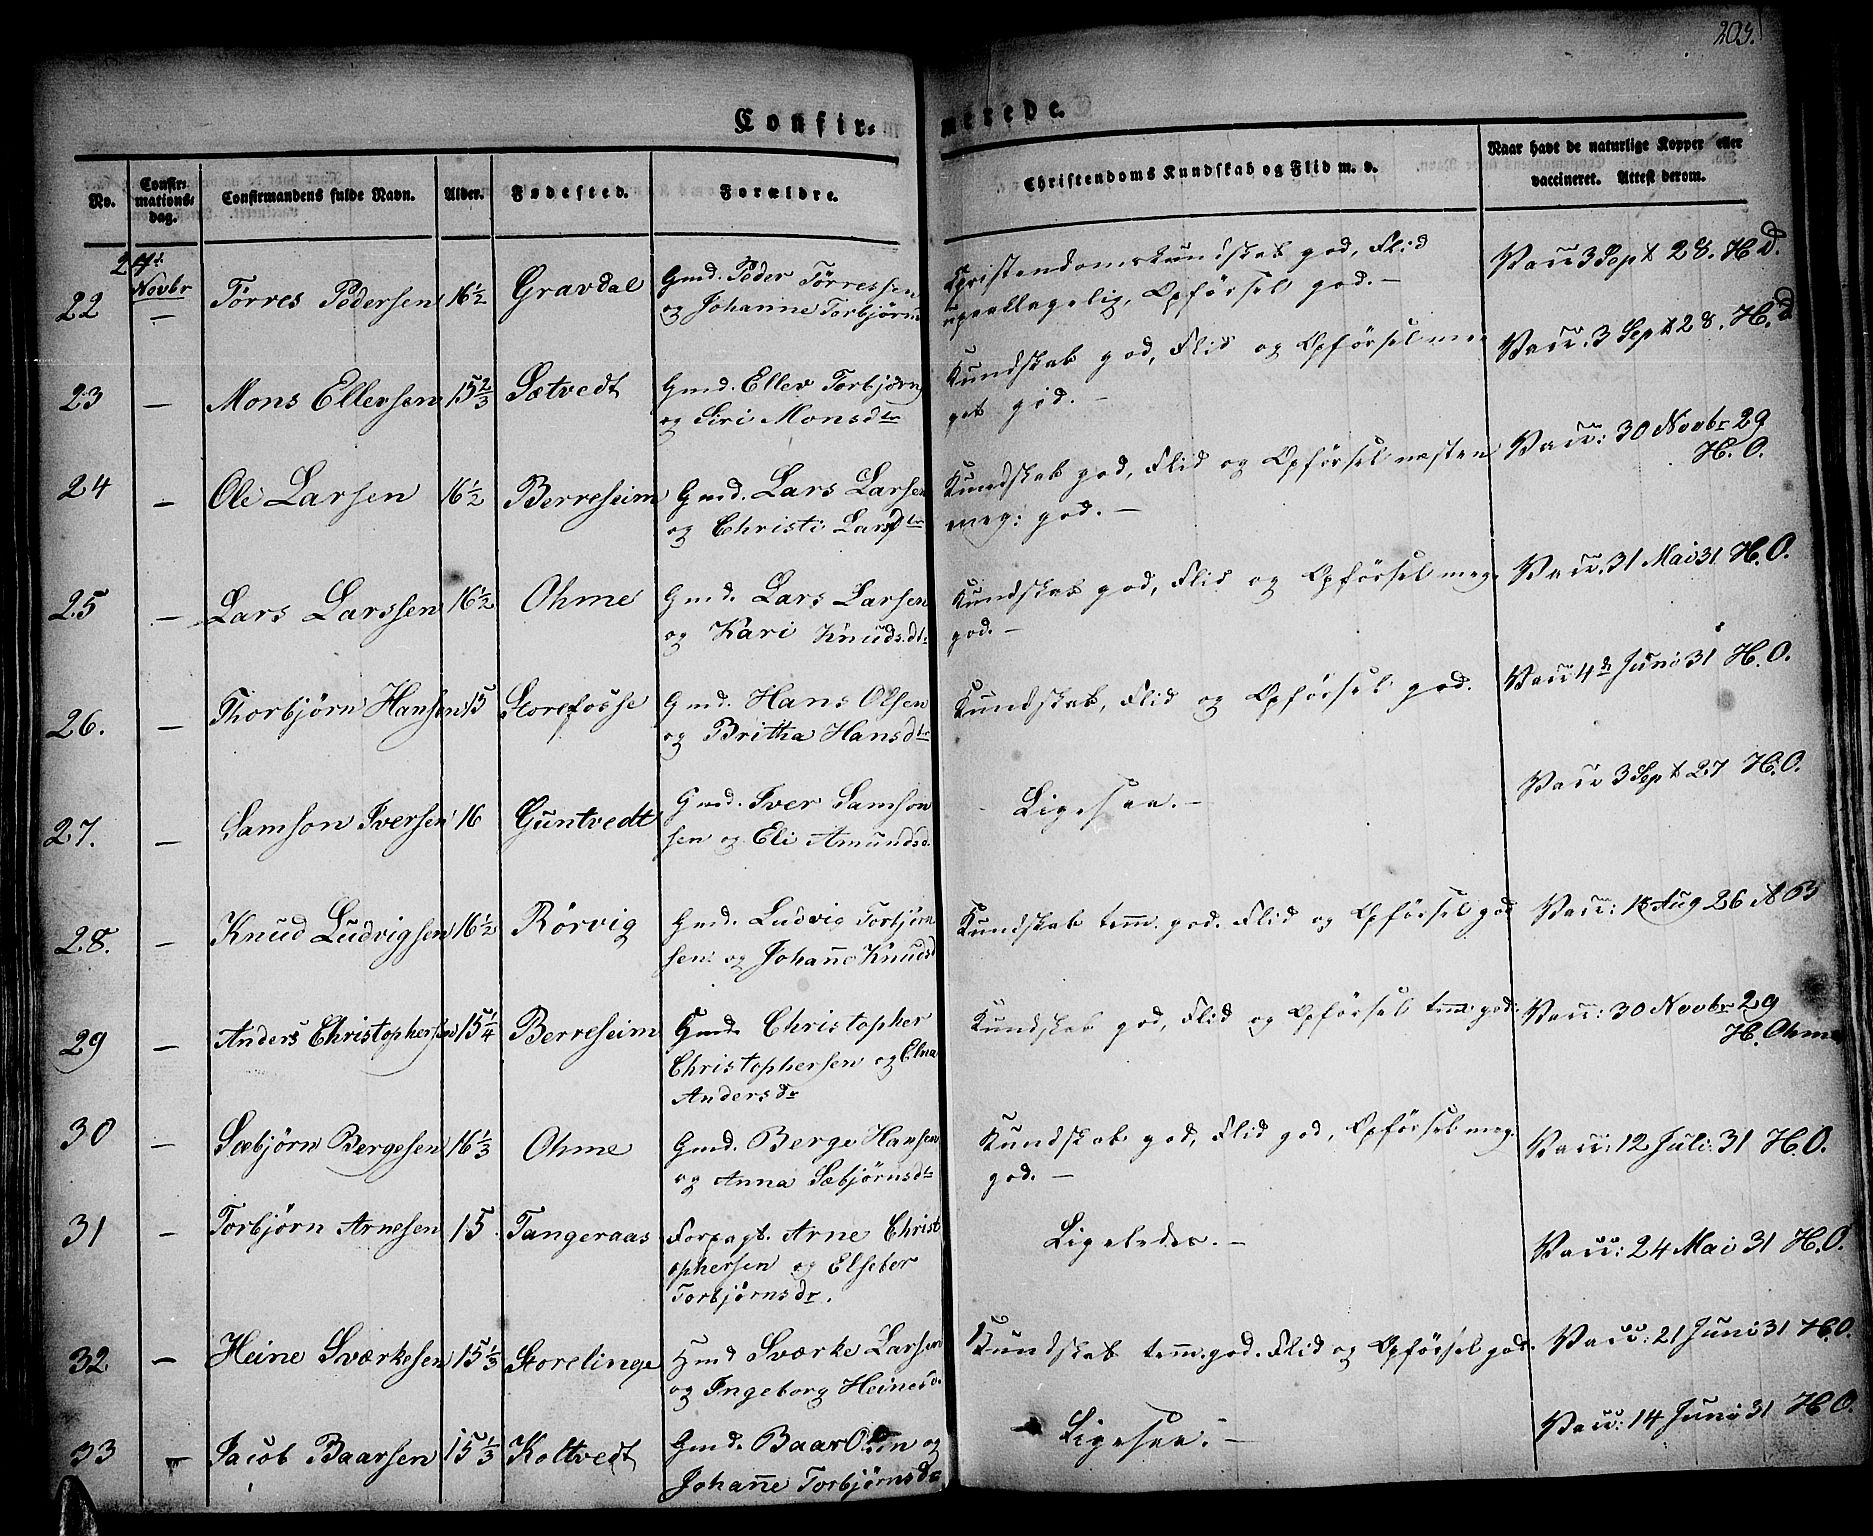 203.
Confir-
merede.
No.
Confir-
mations-
dag.
Confirmandens fulde Navn.
Alder.
Fødested.
Forældre.
Christendoms Kundskab og Flid m. v.
Naar havt de naturlige Kopper eller
vaccineret. Attest derom.
Novbr
22 — Tørres Pedersen 16½ Gravdal Gmd. Peder Tørressen
og Johanne Torbjørnsd
Christendomskundskab god, Flid
upaaklagelig, Opførsel god. —
Vacc 3 Sept 28. H d.
23 — Mons Ellersen 15⅔ Sætvedt Gmd. Ellev Torbjørns
og Siri Monsdtr
Kundskab god, Flid og Opførsel me-
get god. —
Vacc. 3 Sept 28. H. d
24 — Ole Larsen 16½ Berreheim Gmd. Lars Larsen
og Christi Larsdtr
Kundskab god, Flid og Opførsel næsten
meg: god. —
Vacc: 30 Novbr 29
H. O.
25 — Lars Larssen 16½ Ohme Gmd. Lars Larsen
og Kari Knudsdtr
Kundskab god, Flid og Opførsel meg.
god. —
Vacc. 31 Mai 31 H. O.
26. — Thorbjørn Hansen 15 Storefosse Gmd. Hans Olsen
og Britha Hansdtr
Kundskab, Flid og Opførsel god.
Vacc 4de Juni 31 H. O.
27. — Samson Iversen 16 Guntvedt Gmd. Iver Samson
sen og Eli Amundsd.
Ligesaa. —
Vacc 3 Sept 27 H. O.
28. — Knud Ludvigsen 16½ Rörvig Gmd. Ludvig Torbjørn
sen og Johanne Knudsd
Kundskab temm. god. Flid og Opførsel god
Vacc: 15 Aug 26 A B
29 — Anders Christophersen 15¼ Berreheim Hmd. Christopher
Christophersen og Elna
Andersdr
Kundskab god, Flid og Opførsel temm: god.
Vacc: 30 Novbr 29
H. Ohme
30 — Sæbjörn Bergesen 16⅓ Ohme Gmd. Berge Hansen
og Anna Sæbjørnsdtr
Kundskab god, Flid god, Opførsel meg.
god. —
Vacc: 12 Juli: 31 H. O.
31 — Torbjörn Arnesen 15 Tangeraas Forpagt. Arne Christ
ophersen og Elsebor
Torbjørnsdr.
Ligeledes. —
Vacc: 24 Mai 31 H. O.
32 — Heine Sværkesen 15⅓ Storelinge Hmd Sværke Larsen
og Ingeborg Heinesd.
Kundskab temm. god. Flid og Opførsel god.
Vacc: 21 Juni 31 H. O.
33 — Jacob Baarsen 15⅓ Koltvedt Gmd. Baar Olsen og
Johanne Torbjørnsdr
Ligesaa. —
Vacc: 14 Juni 31 H. O.